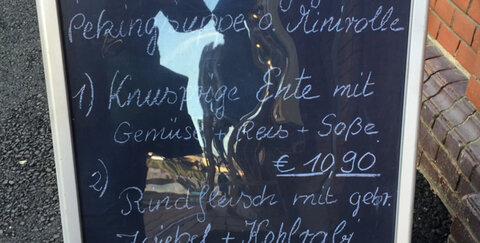 Pekingsuppe o Minirolle
1) Knusprige Ente mit
Gemüse + Reis + Soße
€ 10,90
2) Rindfleisch mit gebr.
Zwiebel + Kohlrabi